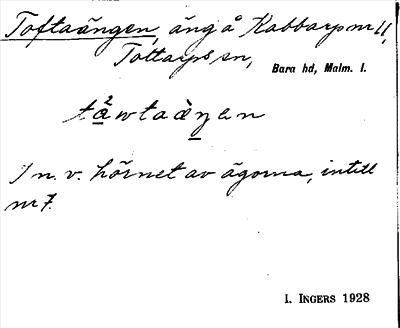 Toftaängen, äng å Kabbarp nr 11,
Tottarps sn, Bara hd, Malm. l.
I n. v. hörnet av ägorna, intill
nr 7.
I. INGERS 1928